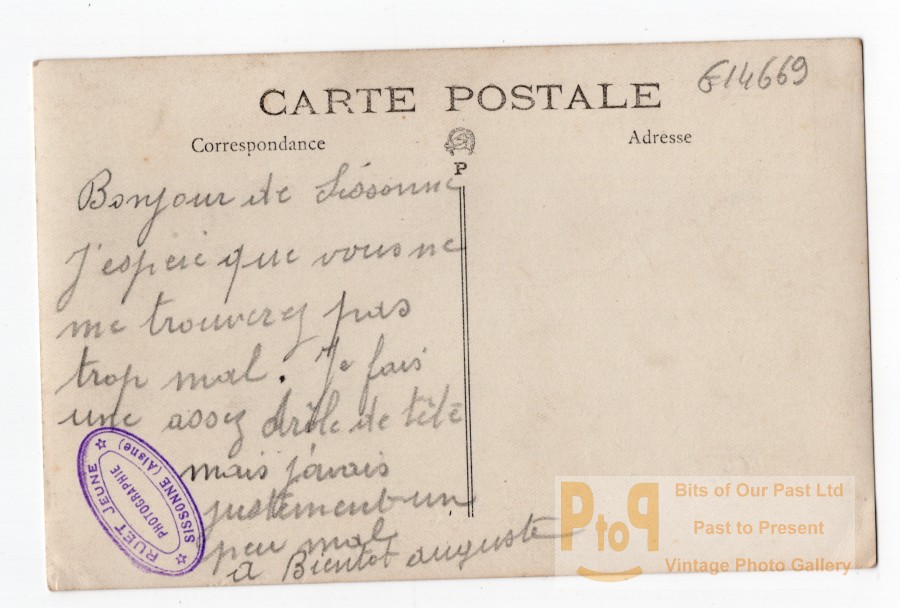 G14669
CARTE POSTALE
Correspondance
Adresse
P
Bonjour de Sissonne
J'espere que vous ne
me trouverez pas
trop mal. Je fais
une assez drôle de tête
mais j'avais
justement un
peu mal
a Bientot auguste
RUET JEUNE
PHOTOGRAPHIE
SISSONNE (Aisne)
PtoP
Bits of Our Past Ltd
Past to Present
Vintage Photo Gallery